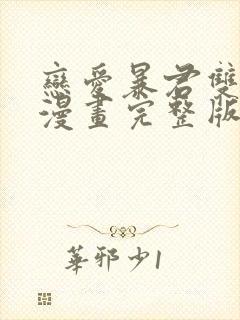 戀愛暴君雙
漫畫完整版
華邪少1